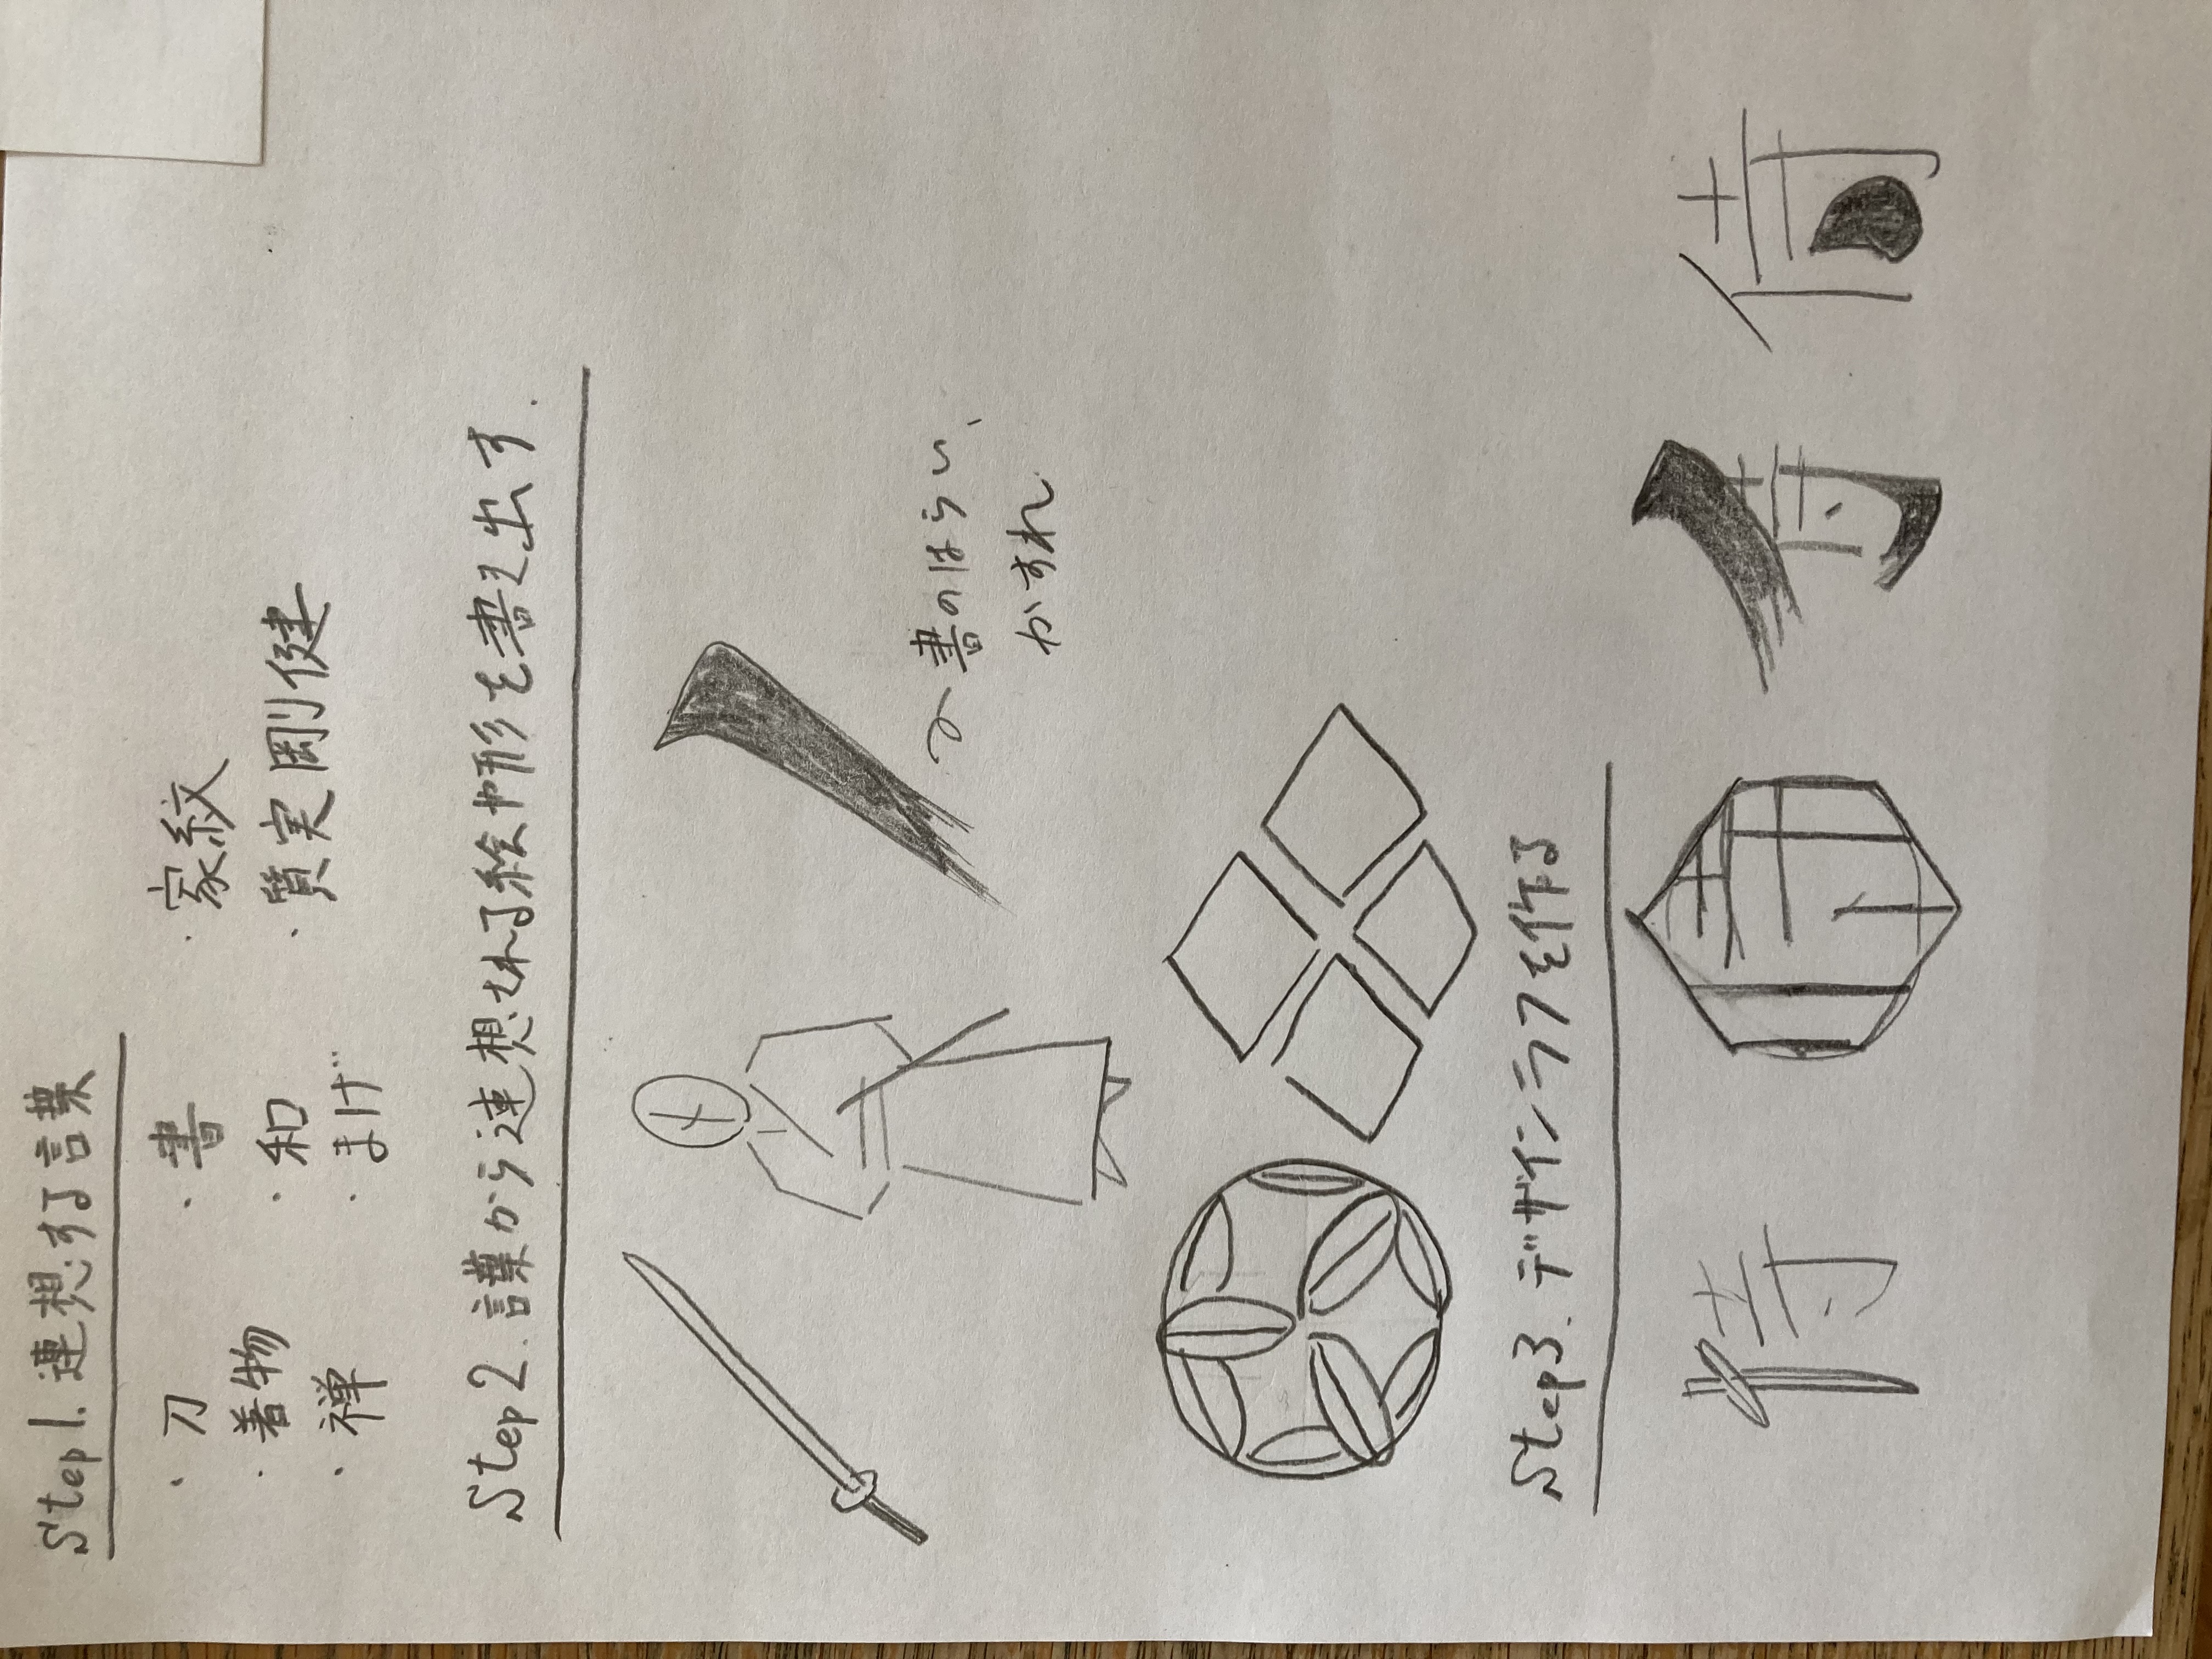 Step1. 連想する言葉
・刀
・着物
・禅
・書
・和
・まげ
・家紋
・質実剛健
Step2. 言葉から連想される絵や形を書き出す.
書のはらい、
かすれ
Step3. デザインラフを作る
侍 侍 侍 侍